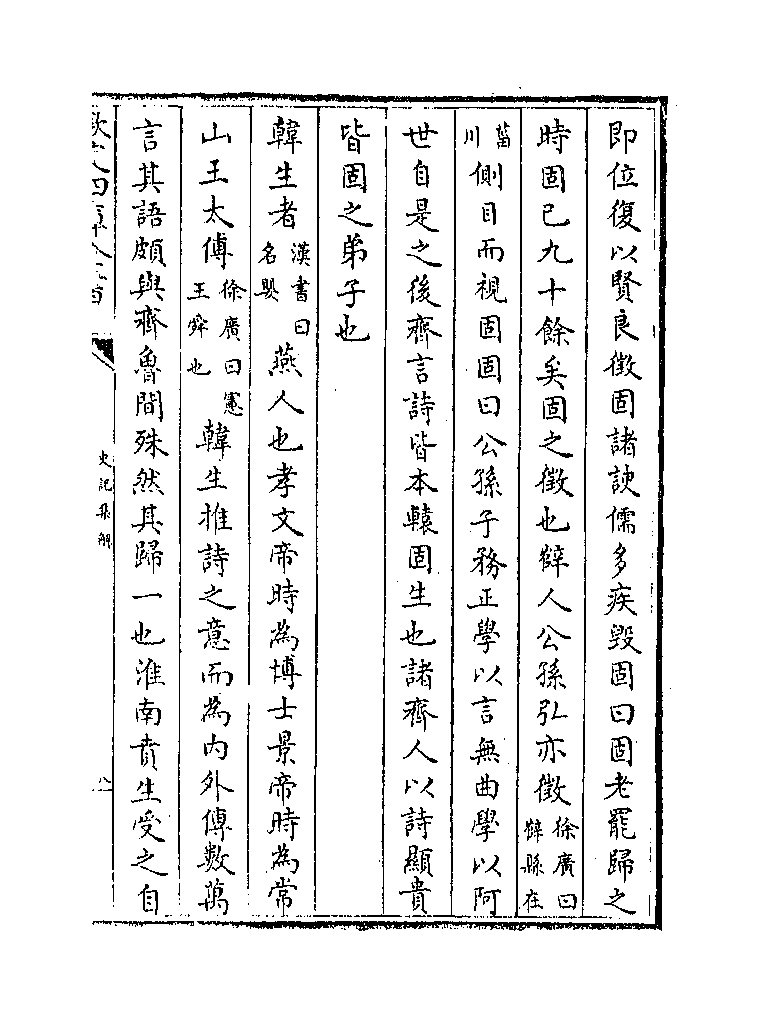 即位復以賢良徵固諸諛儒多疾毀固曰固老罷歸之
時固已九十餘矣固之徵也薛人公孫弘亦徵徐廣曰薛縣在
菑川側目而視固固曰公孫子務正學以言無曲學以阿
世自是之後齊言詩皆本轅固生也諸齊人以詩顯貴
皆固之弟子也
韓生者漢書曰名嬰燕人也孝文帝時為博士景帝時為常
山王太傅徐廣曰憲王舜也韓生推詩之意而為內外傳數萬
言其語頗與齊魯間殊然其歸一也淮南賁生受之自
史記集解